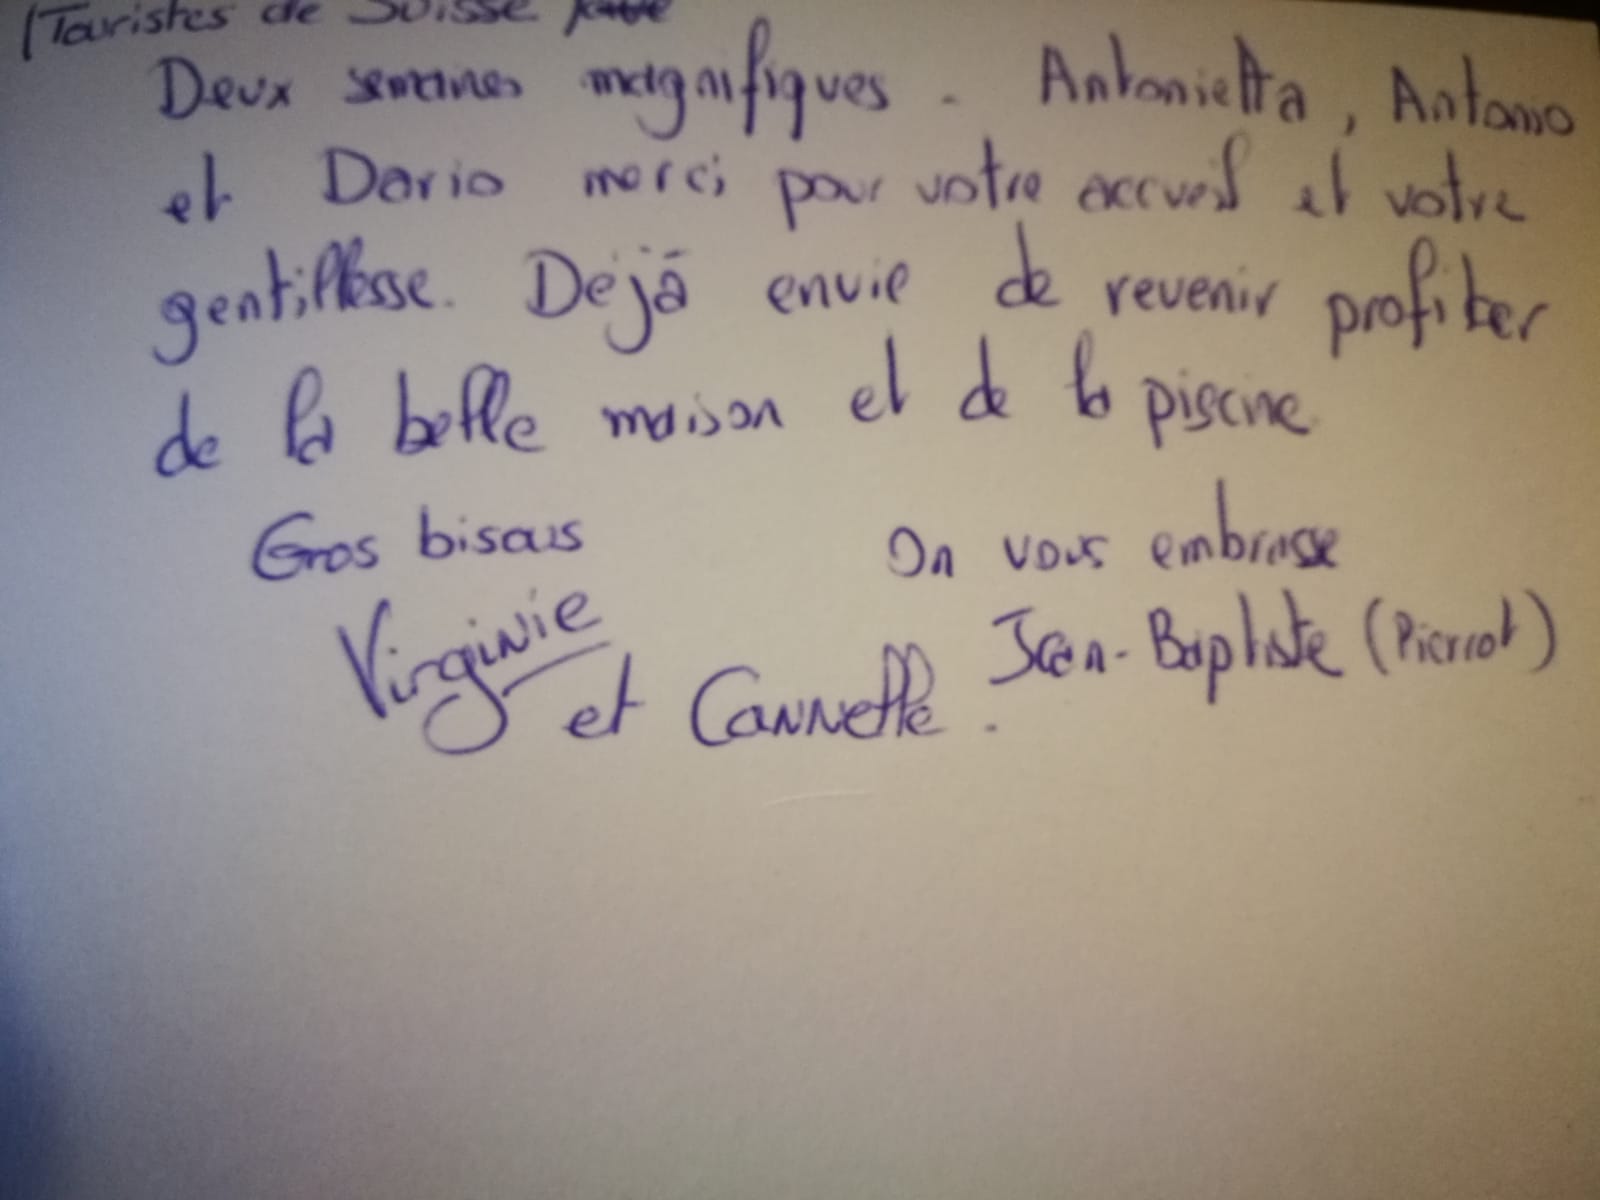 (Touristes de Suisse
Deux semaines magnifiques. Antonietta, Antonio
et Dario merci pour votre accueil et votre
gentillesse. Déjà envie de revenir profiter
de la belle maison et de la piscine
Gros bisous On vous embrasse
Virginie Jean-Baptiste (Pierrot)
et Cannelle.